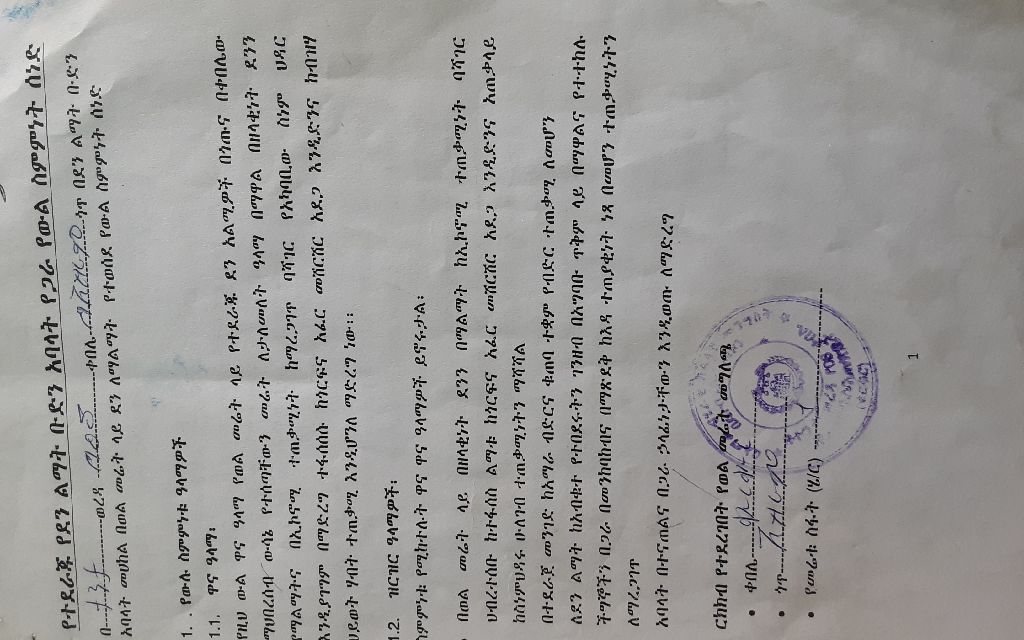 የተደራጁ የደን ልማት ቡድን አባላት የጋራ የውል ስምምነት ሰነድ
በ ወረዳ ቀበሌ ጎጥ በደን ልማት ቡድን
አባላት መካከል በወል መሬት ላይ ደን ለማልማት የተወሰደ የውል ስምምነት ሰነድ
1. . የውሉ ስምምነቱ ዓላማዎች
1.1. ዋና ዓላማ፡
የዚህ ውል ዋና ዓላማ የወል መሬት ላይ የተደራጁ ደን አልሚዎች በጎጡና በቀበሌው
ማህበረሰብ ውሳኔ የተሰጣቸውን መሬት ለታለመለት ዓላማ በማዋል በዘላቂነት ደንን
የማልማትና በኢኮኖሚ ተጠቃሚነት ከማረጋገጥ ባሻገር የአካባቢው ስነም ህዳር
እንዲያገግም በማድረግ ተፋሰሱ ከጎርፍና አፈር መሸርሸር አደጋ እንዲድንና ከብዝሃ
ህይወት ሃብት ተጠቃሚ እንዲሆን ለማድረግ ነው፡፡
1.2. ዝርዝር ዓላማዎች፡
ስምምነቱ የሚከተሉት ዋና ዋና ዓላማዎች ይኖሩታል፡
በወል መሬት ላይ በዘላቂነት ደንን በማልማት ከኢኮኖሚ ተጠቃሚነት ባሻገር
ህብረተሰቡ ከተፋሰስ ልማቱ ከጎርፍና አፈር መሸርሸር አደጋ እንዲድንና አጠቃላይ
ከስነምህዳሩ ሁለገብ ተጠቃሚነትን ማሻሻል
በተደራጀ መንገድ ከአማራ ብድርና ቁጠባ ተቋም የብድር ተጠቃሚ ለመሆን
ለደን ልማት ከአብቁተ የተበደሩትን ገንዘብ በአግባቡ ጥቅም ላይ በማዋልና የተተከሉ
ችግኞችን በጋራ በመንከባከብና በማጽደቅ ከእዳ ተጠያቂነት ነጻ በመሆን ተጠቃሚነትን
ለማረጋገጥ
አባላት በተናጠልና በጋራ ኃላፊታቸውን እንዲወጡ ለማድረግ
ርክክብ የተደረገበት የወል መሬት መግለጫ
• ቀበሌ
• ጎጥ
• የመሬቱ ስፋት (ሄ/ር)
1